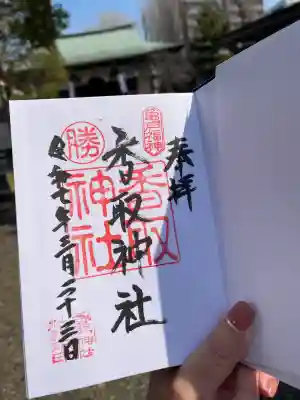 奉拝
香取神社
香取
神社
勝
令和七年三月二十三日